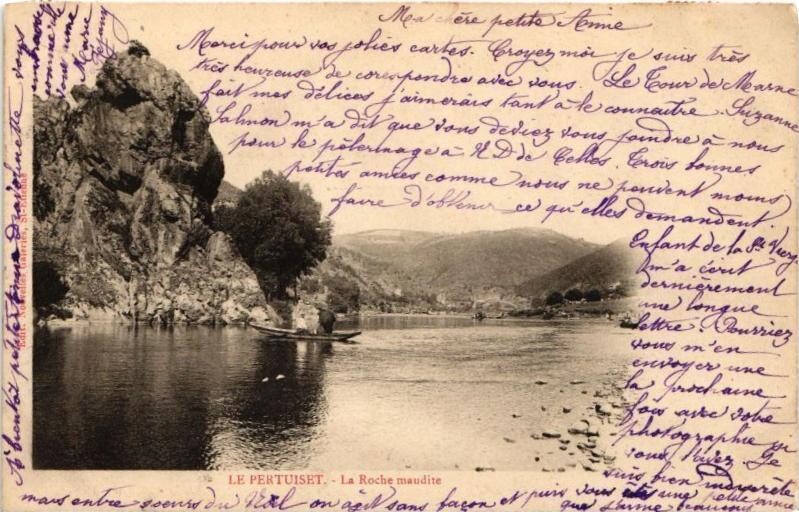 Ma chère petite Anne
Merci pour vos jolies cartes. Croyez moi je suis très
très heureuse de corespondre avec vous. Le Tour de Marne
fait mes délices j'aimerais tant à le connaitre. Suzanne
Salmon m'a dit que vous deviez vous joindre à nous
pour le pèlerinage à N D de Celles. Trois bonnes
petites amies comme nous ne peuvent moins
faire d'obtenir ce qu'elles demandent.
Enfant de la Ste Vierg
m'a écrit
dernièrement
une longue
lettre. Pourriez
vous m'en
envoyer une
la prochaine
fois avec votre
photographie si
vous l'avez. Je
suis bien indiscrète
mais entre soeurs du Noël on agit sans façon et puis vous êtes une petite amie
que j'aime beaucoup
A bientôt petite amie
vous
embrasse
comme je
vous aime
Marie
Edit. Nouvelles Galeries, St-Etienne
LE PERTUISET. - La Roche maudite